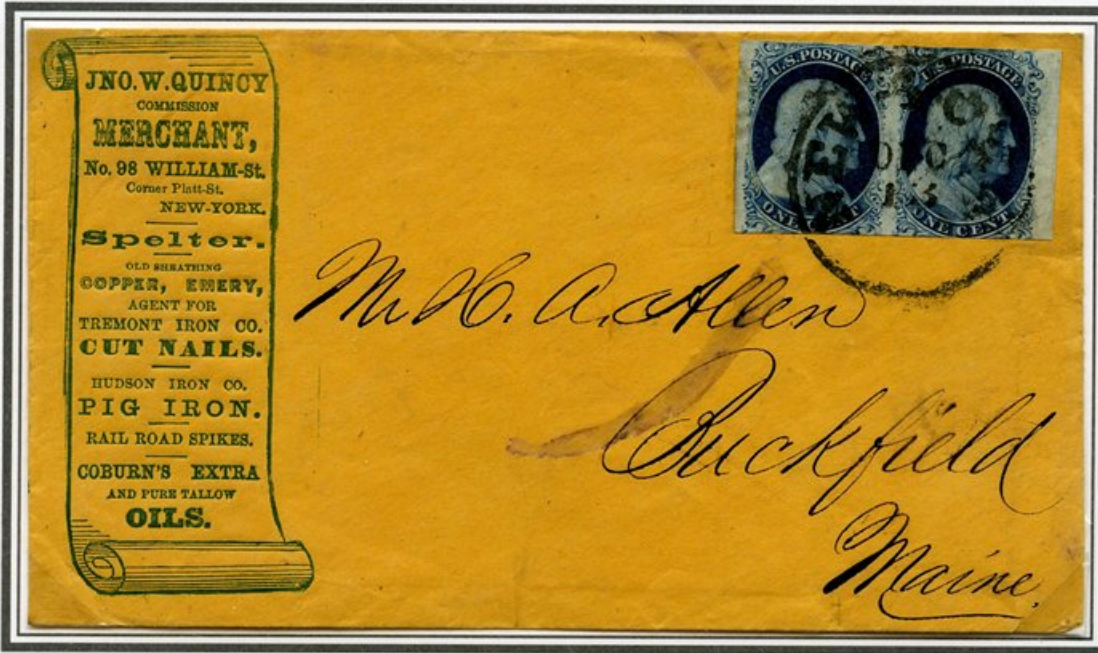 JNO. W. QUINCY
COMMISSION
MERCHANT,
No. 98 WILLIAM-St.
Corner Platt-St.
NEW-YORK.
Spelter.
OLD SHEATHING
COPPER, EMERY,
AGENT FOR
TREMONT IRON CO.
CUT NAILS.
HUDSON IRON CO.
PIG IRON.
RAIL ROAD SPIKES.
COBURN'S EXTRA
AND PURE TALLOW
OILS.
U.S. POSTAGE
ONE
U.S. POSTAGE
ONE CENT
NEW
DEC
Mr H. A. Allen
Buckfield
Maine.